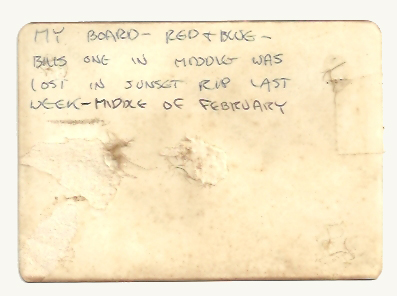 MY BOARD - RED + BLUE -
BILLS ONE IN MIDDLE WAS
LOST IN SUNSET RIP LAST
WEEK - MIDDLE OF FEBRUARY